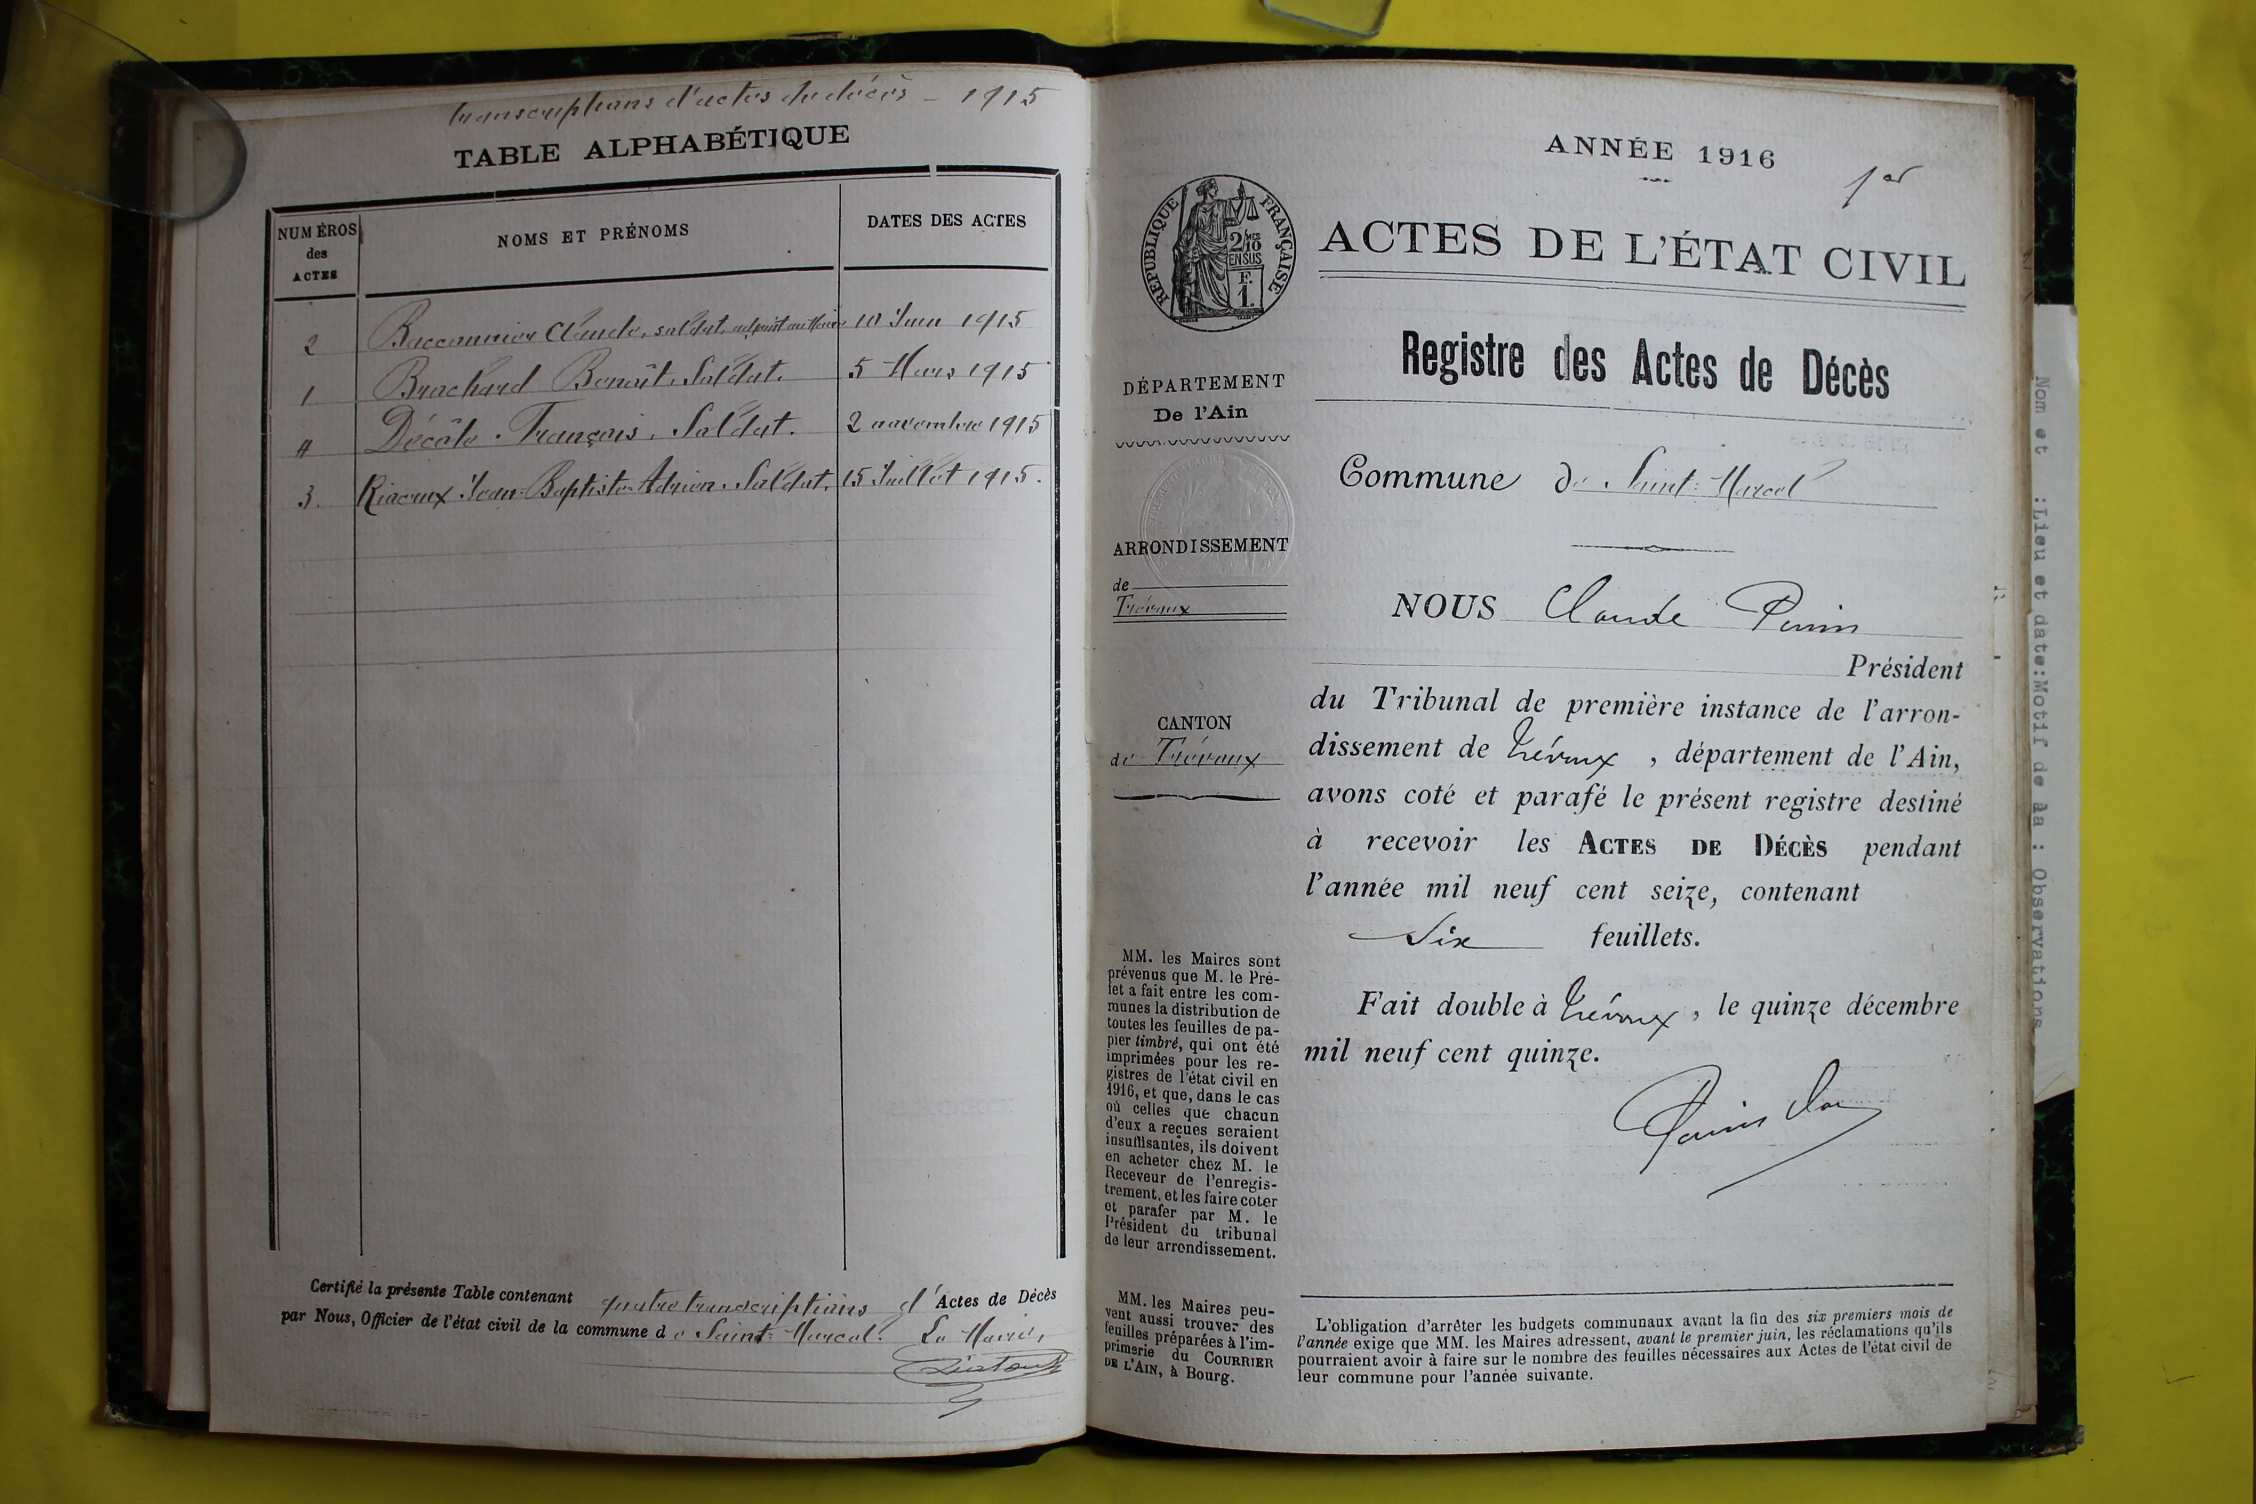 transcriptions d'actes de décès - 1915
TABLE ALPHABÉTIQUE
NUMÉROS
des
ACTES
NOMS ET PRÉNOMS
DATES DES ACTES
2 Baccounnier Claude, soldat, adjoint au Maire 10 Juin 1915
1 Brachard Benoît, Soldat. 5 Mars 1915
4 Décôte François, Soldat. 2 novembre 1915
3. Riaoux Jean-Baptiste-Adrien, Soldat. 15 Juillet 1915.
Certifié la présente Table contenant quatre transcriptions d'Actes de Décès
par Nous, Officier de l'état civil de la commune de Saint-Marcel. Le Maire,
ANNÉE 1916
1er
RÉPUBLIQUE FRANÇAISE
2/10
EN SUS
F.
1.
ACTES DE L'ÉTAT CIVIL
Registre des Actes de Décès
DÉPARTEMENT
De l'Ain
Commune de Saint-Marcel
ARRONDISSEMENT
de
Trévoux
CANTON
de Trévoux
NOUS Claude
Président
du Tribunal de première instance de l'arron-
dissement de Trévoux, département de l'Ain,
avons coté et parafé le présent registre destiné
à recevoir les ACTES DE DÉCÈS pendant
l'année mil neuf cent seize, contenant
Six feuillets.
Fait double à Trévoux, le quinze décembre
mil neuf cent quinze.
MM. les Maires sont
prévenus que M. le Pré-
fet a fait entre les com-
munes la distribution de
toutes les feuilles de pa-
pier timbré, qui ont été
imprimées pour les re-
gistres de l'état civil en
1916, et que, dans le cas
où celles que chacun
d'eux a reçues seraient
insuffisantes, ils doivent
en acheter chez M. le
Receveur de l'enregis-
trement, et les faire coter
et parafer par M. le
Président du tribunal
de leur arrondissement.
MM. les Maires peu-
vent aussi trouver des
feuilles préparées à l'im-
primerie du COURRIER
DE L'AIN, à Bourg.
L'obligation d'arrêter les budgets communaux avant la fin des six premiers mois de
l'année exige que MM. les Maires adressent, avant le premier juin, les réclamations qu'ils
pourraient avoir à faire sur le nombre des feuilles nécessaires aux Actes de l'état civil de
leur commune pour l'année suivante.
Nom et :Lieu et date:Motif de la : Observations